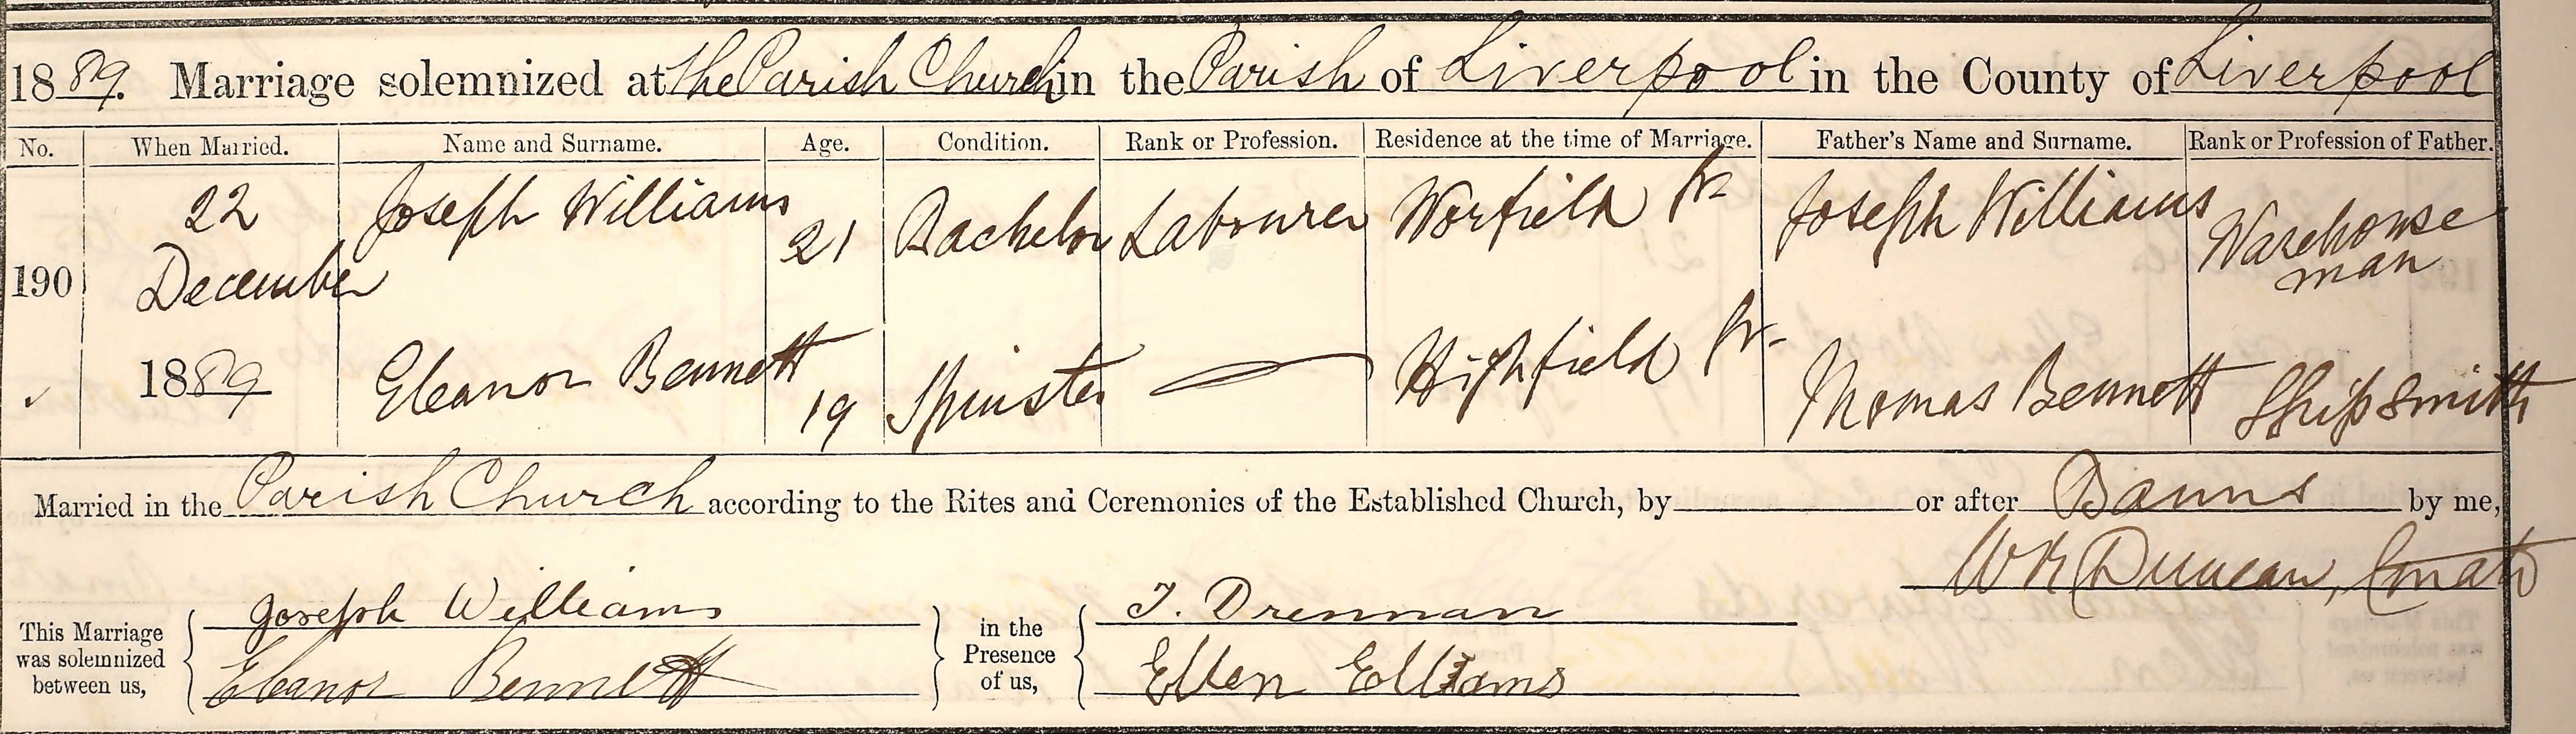 1889. Marriage solemnized at the Parish Church in the Parish of Liverpool in the County of Liverpool
No. When Married. Name and Surname. Age. Condition. Rank or Profession. Residence at the time of Marriage. Father's Name and Surname. Rank or Profession of Father.
190 22 December 1889 Joseph Williams 21 Bachelor Labourer Worfield Joseph Williams Warehouse man
Eleanor Bennett 19 Spinster Highfield Thomas Bennett Ship Smith
Married in the Parish Church according to the Rites and Ceremonies of the Established Church, by or after Banns by me,
W R Duncan, Curate
This Marriage was solemnized between us, Joseph Williams in the Presence of us, J. Drennan
Eleanor Bennett Ellen Elliams